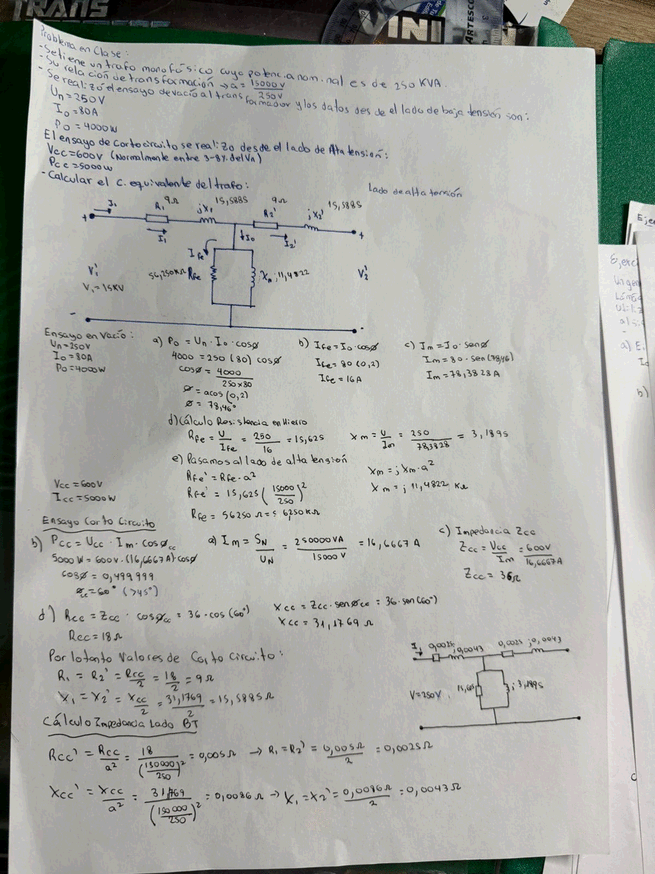 TRANS
VINI
ARTESCO
Problema en Clase:
- Se tiene un trafo monofásico cuya potencia nominal es de 250 KVA.
- Su relación de transformación → a = 15000V / 250V
- Se realizó el ensayo de vacío al transformador y los datos desde el lado de baja tensión son:
Un = 250V
Io = 80A
Po = 4000W
El ensayo de Cortocircuito se realizo desde el lado de Alta tensión:
Vcc = 600V (Normalmente entre 3-8% del Vn)
Pcc = 5000W
- Calcular el C. equivalente del trafo:
Lado de alta tensión
9Ω 15,5885 9Ω 15,5885
R1 jX1 R2' jX2'
I1 Io I2'
Ife
56,250KΩ Rfe Xm 11,4822
V1' V2'
V1 = 15KV
Ensayo en Vacío:
Un = 250V
Io = 80A
Po = 4000W
a) Po = Un · Io · cosø
4000 = 250 (80) cosø
cosø = 4000 / 250×80
ø = acos (0,2)
ø = 78,46°
b) Ife = Io · cosø
Ife = 80 (0,2)
Ife = 16A
c) Im = Io · senø
Im = 80 · sen(78,46)
Im = 78,3828A
d) Cálculo Resistencia en Hierro
Rfe = U / Ife = 250 / 16 = 15,625
Xm = U / Im = 250 / 78,3828 = 3,1895
e) Pasamos al lado de alta tensión
Rfe' = Rfe · a²
Rfe' = 15,625 (15000 / 250)²
Rfe = 56250 Ω = 56,250KΩ
Xm = jXm · a²
Xm = j 11,4822 KΩ
Vcc = 600V
Icc = 5000W
Ensayo Corto Circuito
b) Pcc = Ucc · Im · cosøcc
5000W = 600V · (16,6667A) cosø
cosø = 0,499999
øcc = 60° (>45°)
a) Im = SN / UN = 250000VA / 15000V = 16,6667A
c) Impedancia Zcc
Zcc = Vcc / Im = 600V / 16,6667A
Zcc = 36Ω
d) Rcc = Zcc · cosøcc = 36 · cos (60°)
Rcc = 18Ω
Xcc = Zcc · senøcc = 36 · sen(60°)
Xcc = 31,1769 Ω
Por lo tanto Valores de Corto Circuito:
R1 = R2' = Rcc / 2 = 18 / 2 = 9Ω
X1 = X2' = Xcc / 2 = 31,1769 / 2 = 15,5885Ω
0,0025 j0,0043 0,0025 j0,0043
V=250V 15,62 j3,1895
Cálculo Impedancia Lado BT
Rcc' = Rcc / a² = 18 / (150000 / 250)² = 0,005Ω → R1 = R2' = 0,005Ω / 2 = 0,0025Ω
Xcc' = Xcc / a² = 31,1769 / (150000 / 250)² = 0,0086Ω → X1 = X2' = 0,0086Ω / 2 = 0,0043Ω